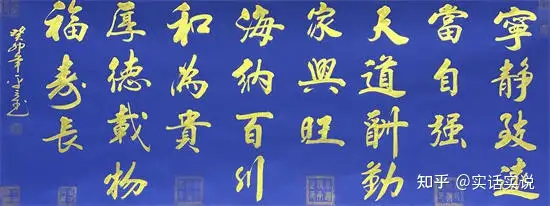 寧靜致遠
當自强
天道酬勤
家興旺
海納百川
和為貴
厚德載物
福寿長
癸卯年
知乎 @实话实说